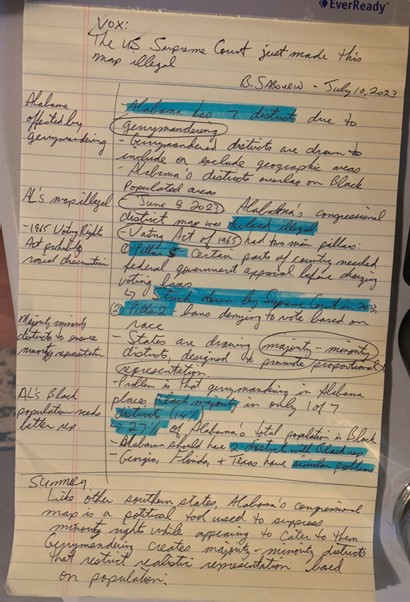 EverReady
Vox:
The US Supreme Court just made this
map illegal
B. SABOURIN - July 10, 2023
Alabama
affected by
gerrymandering
- Alabama has 7 districts due to
gerrymandering
- Gerrymandered districts are drawn to
include or exclude geographic areas
- Alabama's district overlap on Black
populated areas
AL's map illegal
- June 9 2023, Alabama's congressional
district map was illegal
- 1965 Voting Rights
Act prohibits
racial discrimination
- Voting Act of 1965 had two main pillars:
① Pillar - Certain parts of country needed
federal government approval before changing
voting laws
↳ Struck down by Supreme Court in 2013
② Pillar 2 bans denying to vote based on
race
Majority minority
districts to
minority representation
- States are drawing majority-minority
districts, designed to promote proportional
representation
- Problem is that gerrymandering in Alabama
places black majority in only 1 of 7
district (14%)
AL's Black
population needs
better rep
→ 27% of Alabama's total population is Black
- Alabama should have 2 district with Black rep
- Georgia, Florida, + Texas have similar
Summary
Like other southern states, Alabama's congressional
map is a political tool used to suppress
minority rights while appearing to cater to them.
Gerrymandering creates majority-minority districts
that restrict realistic representation based
on population.